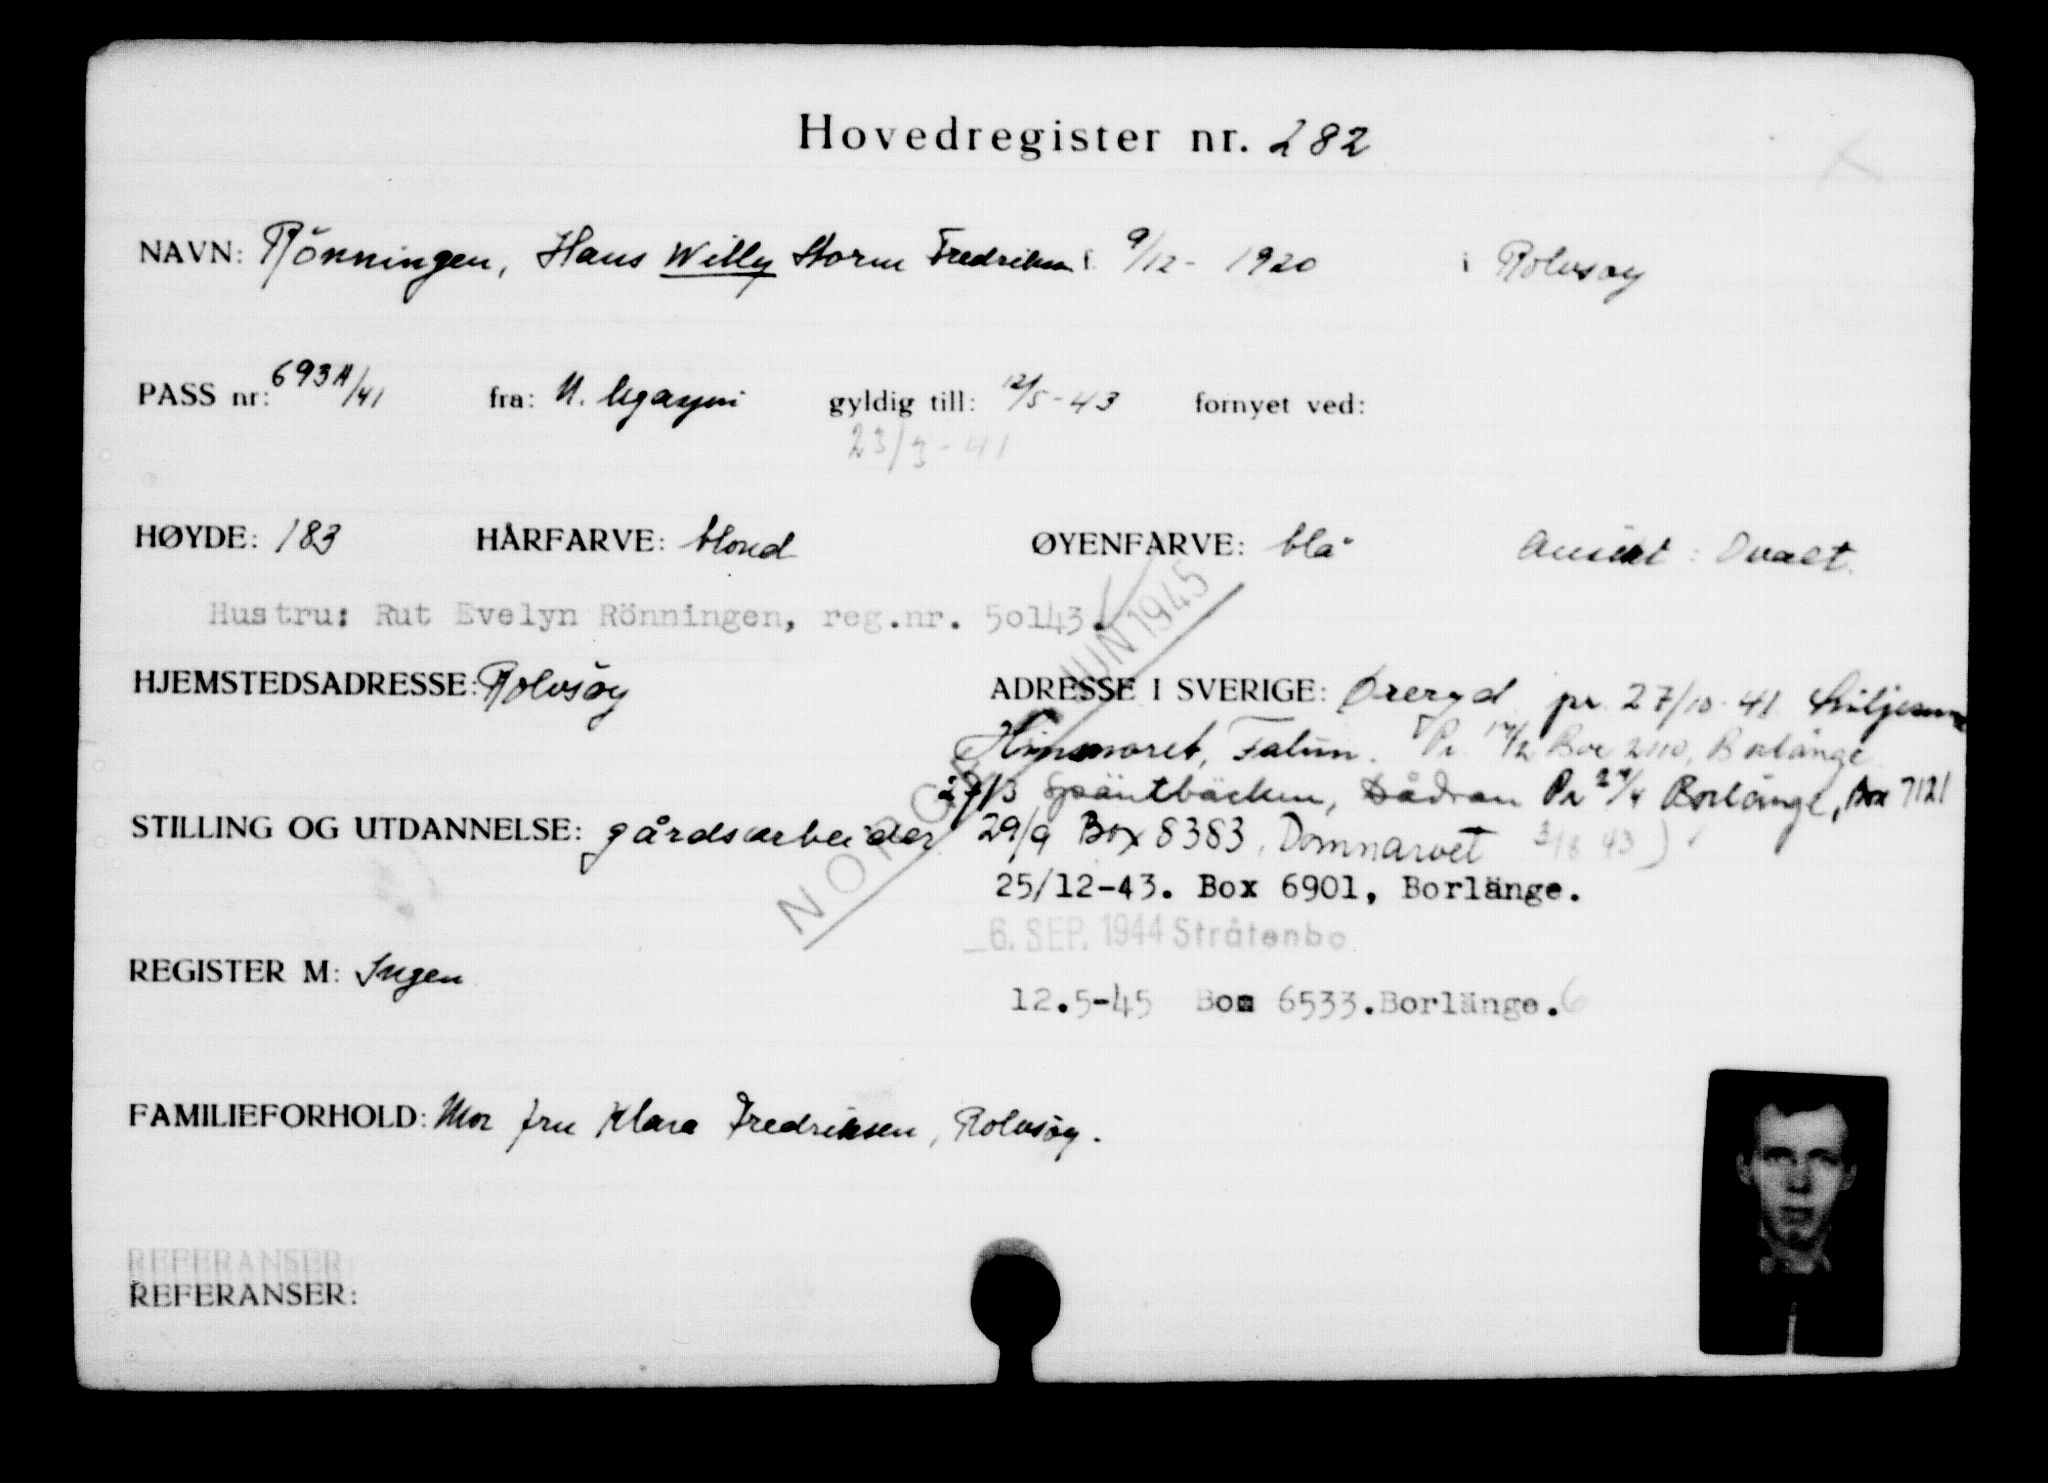 Hovedregister nr. 282
NAVN: Rönningen, Hans Willy Storm Fredriksen f. 9/12 - 1920 i Rolvsøy
PASS nr: 693A/41 fra: gyldig till: 12/5-43 fornyet ved:
23/3-41
HØYDE: 183 HÅRFARVE: blond ØYENFARVE: blå Ansikt: Ovalt.
Hustru: Rut Evelyn Rönningen, reg.nr. 50143.
NORGE JUN 1945
HJEMSTEDSADRESSE: Rolvsöy
ADRESSE I SVERIGE: Øreryd pr. 27/10-41
Falun. Pr. 17/2 Box 2110, Borlänge
29/3 Späntbäcken, Dådran Pr 29/4 Borlänge, Box 7121
STILLING OG UTDANNELSE: gårdsarbeider
29/9 Box 8383, Domnarvet
25/12-43. Box 6901, Borlänge.
-6. SEP. 1944 Stråtenbo
REGISTER M: Ingen
12.5-45 Box 6533.Borlänge.
FAMILIEFORHOLD: Mor fru Klara Fredriksen, Rolvsöy.
REFERANSER
REFERANSER: